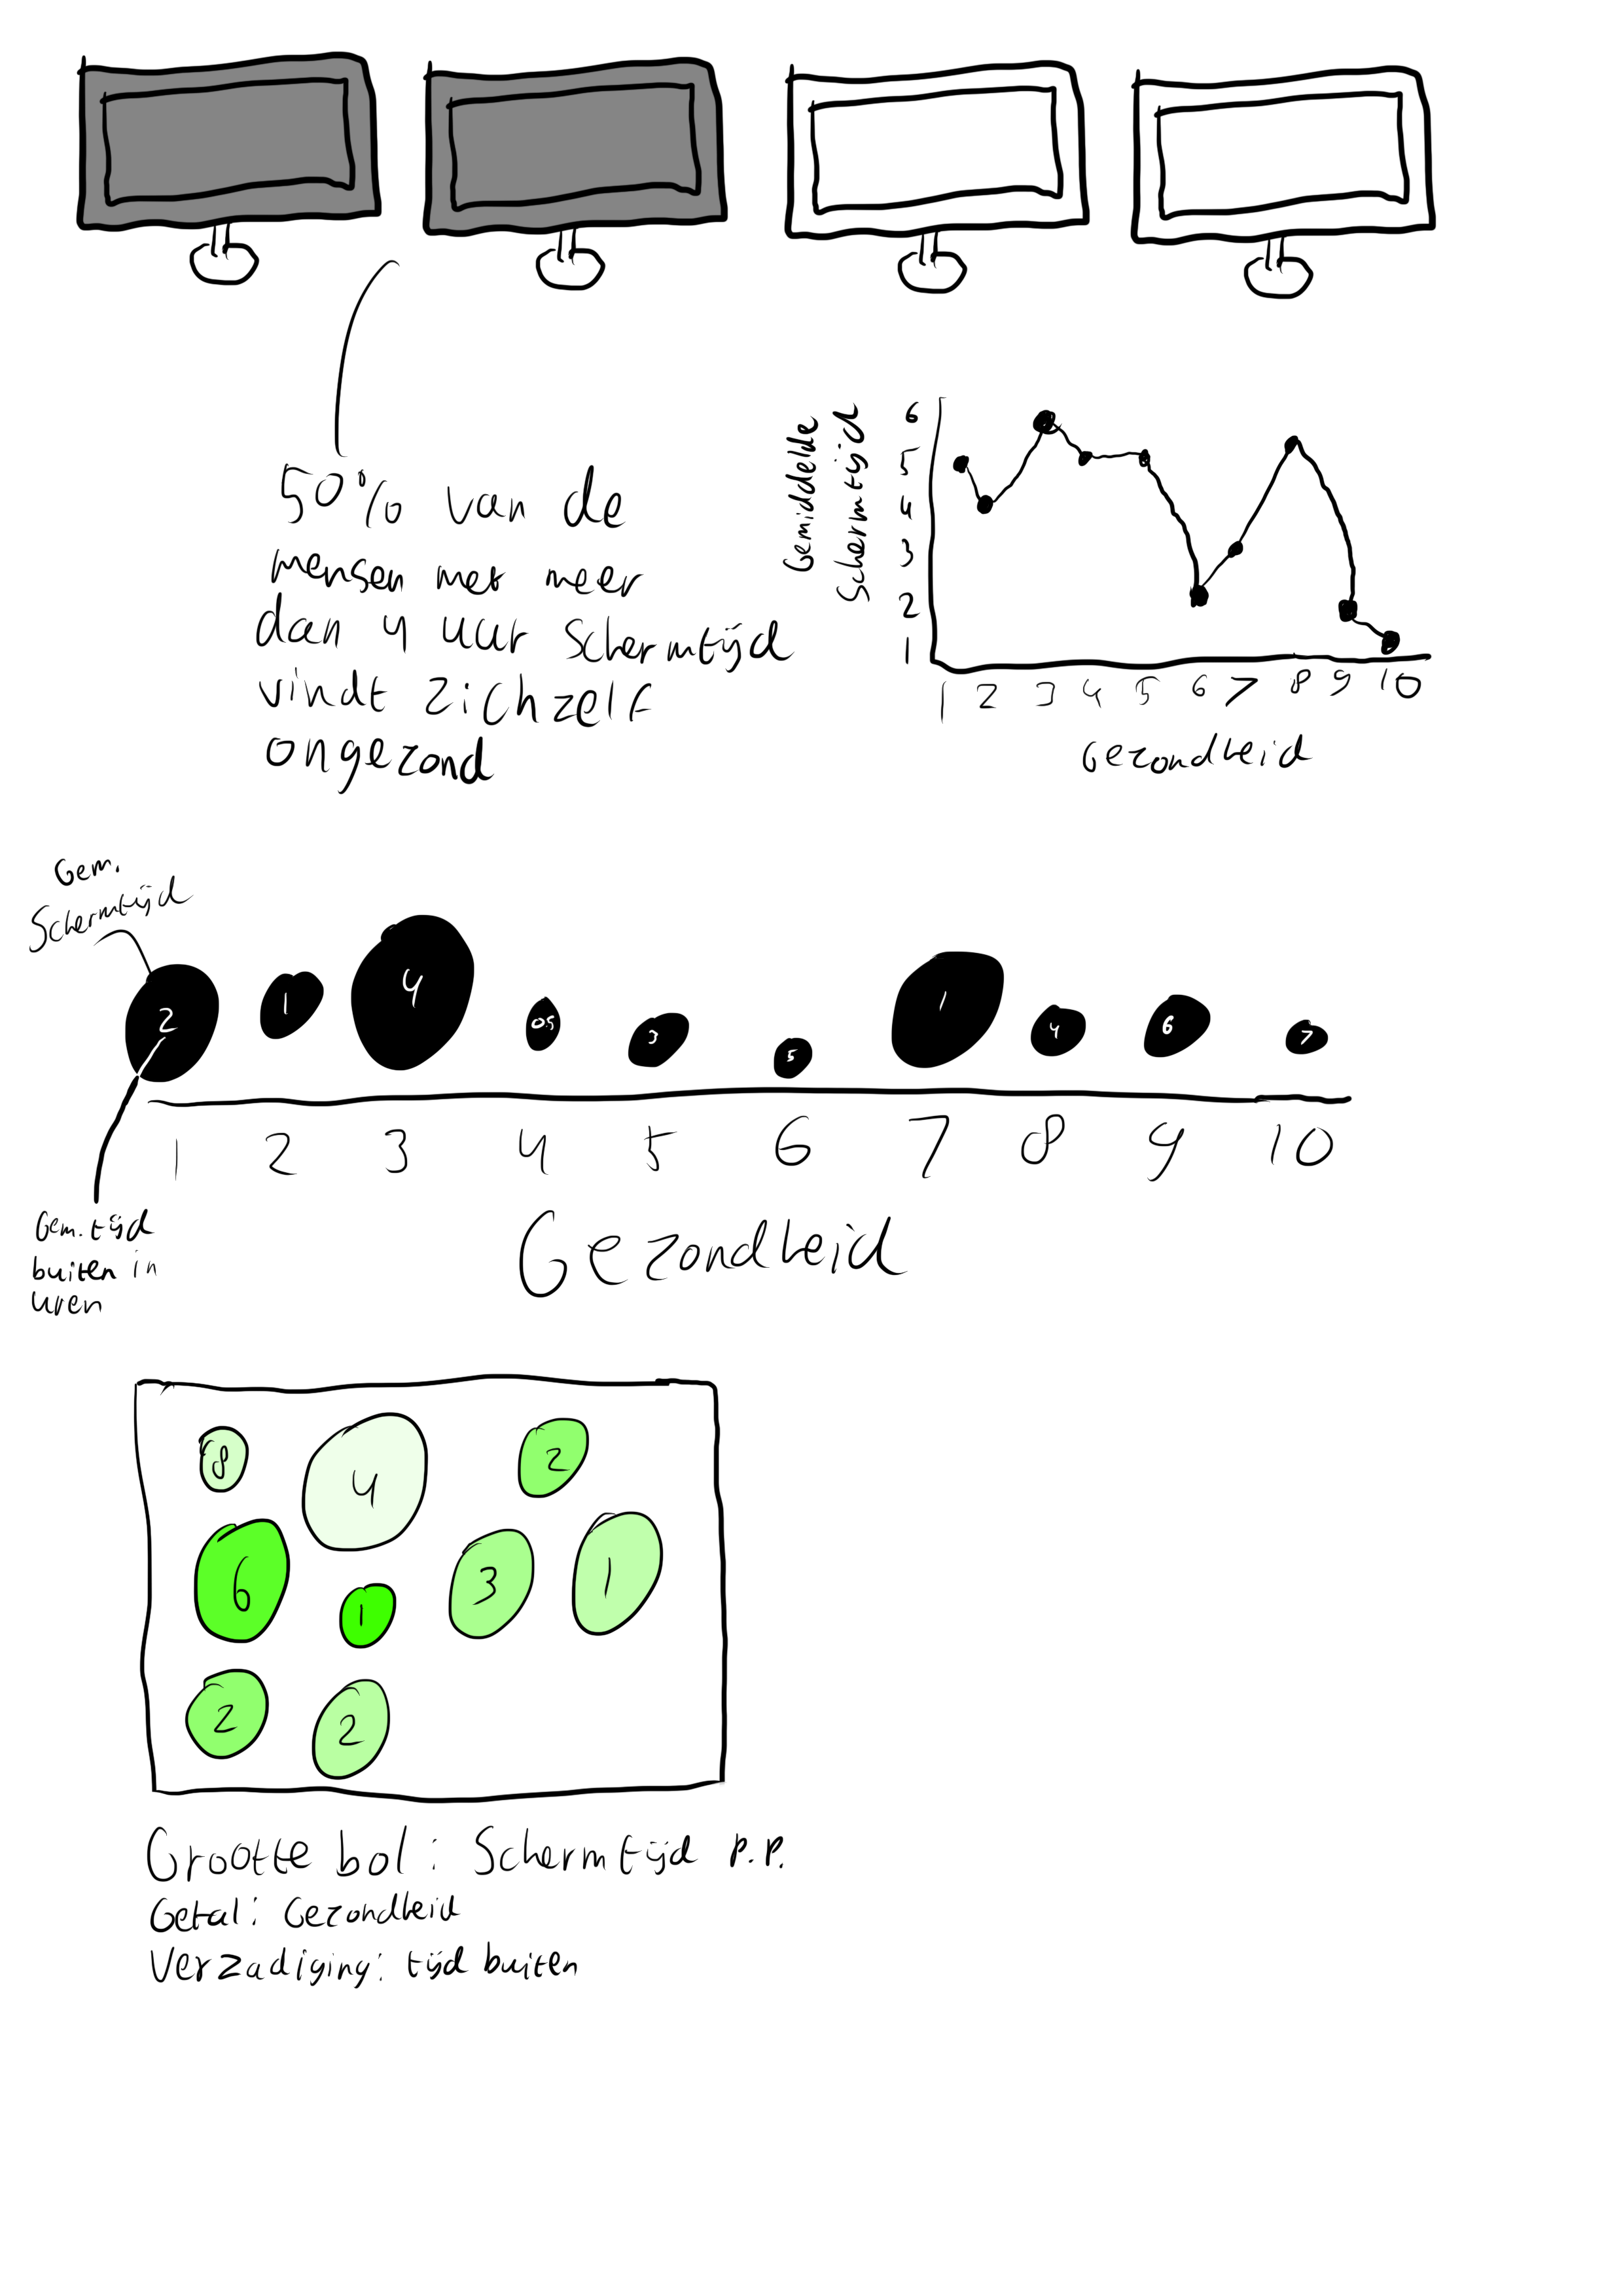 50% van de
mensen met meer
dan 4 uur Schermtijd
vindt zichzelf
ongezond
Gemiddelde
Schermtijd
6
5
4
3
2
1
1 2 3 4 5 6 7 8 9 10
Gezondheid
Gem.
Schermtijd
2 1 4 0.5 3 5 1 4 6 7
1 2 3 4 5 6 7 8 9 10
Gem. tijd
buiten in
uren
Gezondheid
8 4 2
6 1 3 1
2 2
Grootte bol: Schermtijd p.p.
Getal: Gezondheid
Verzadiging: tijd buiten